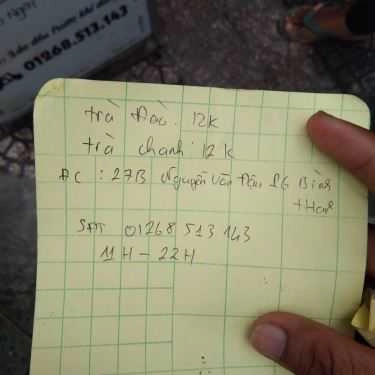 01268.513.143
trà Đào: 12K
trà chanh: 12K
ĐC : 27B Nguyễn Văn Đậu
Bình
SĐT 01268 513 143
11H - 22H